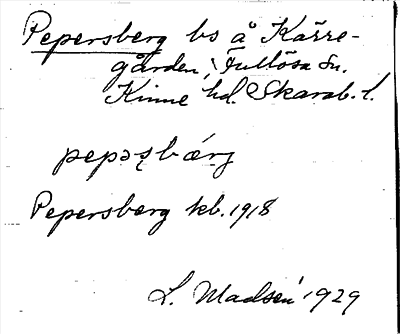 Pepersberg bs å Kärre-
gården, Fullösa sn.
Kinne hd. Skarab. l.
pepəsbærj
Pepersberg kb. 1918
L. Madsén 1929